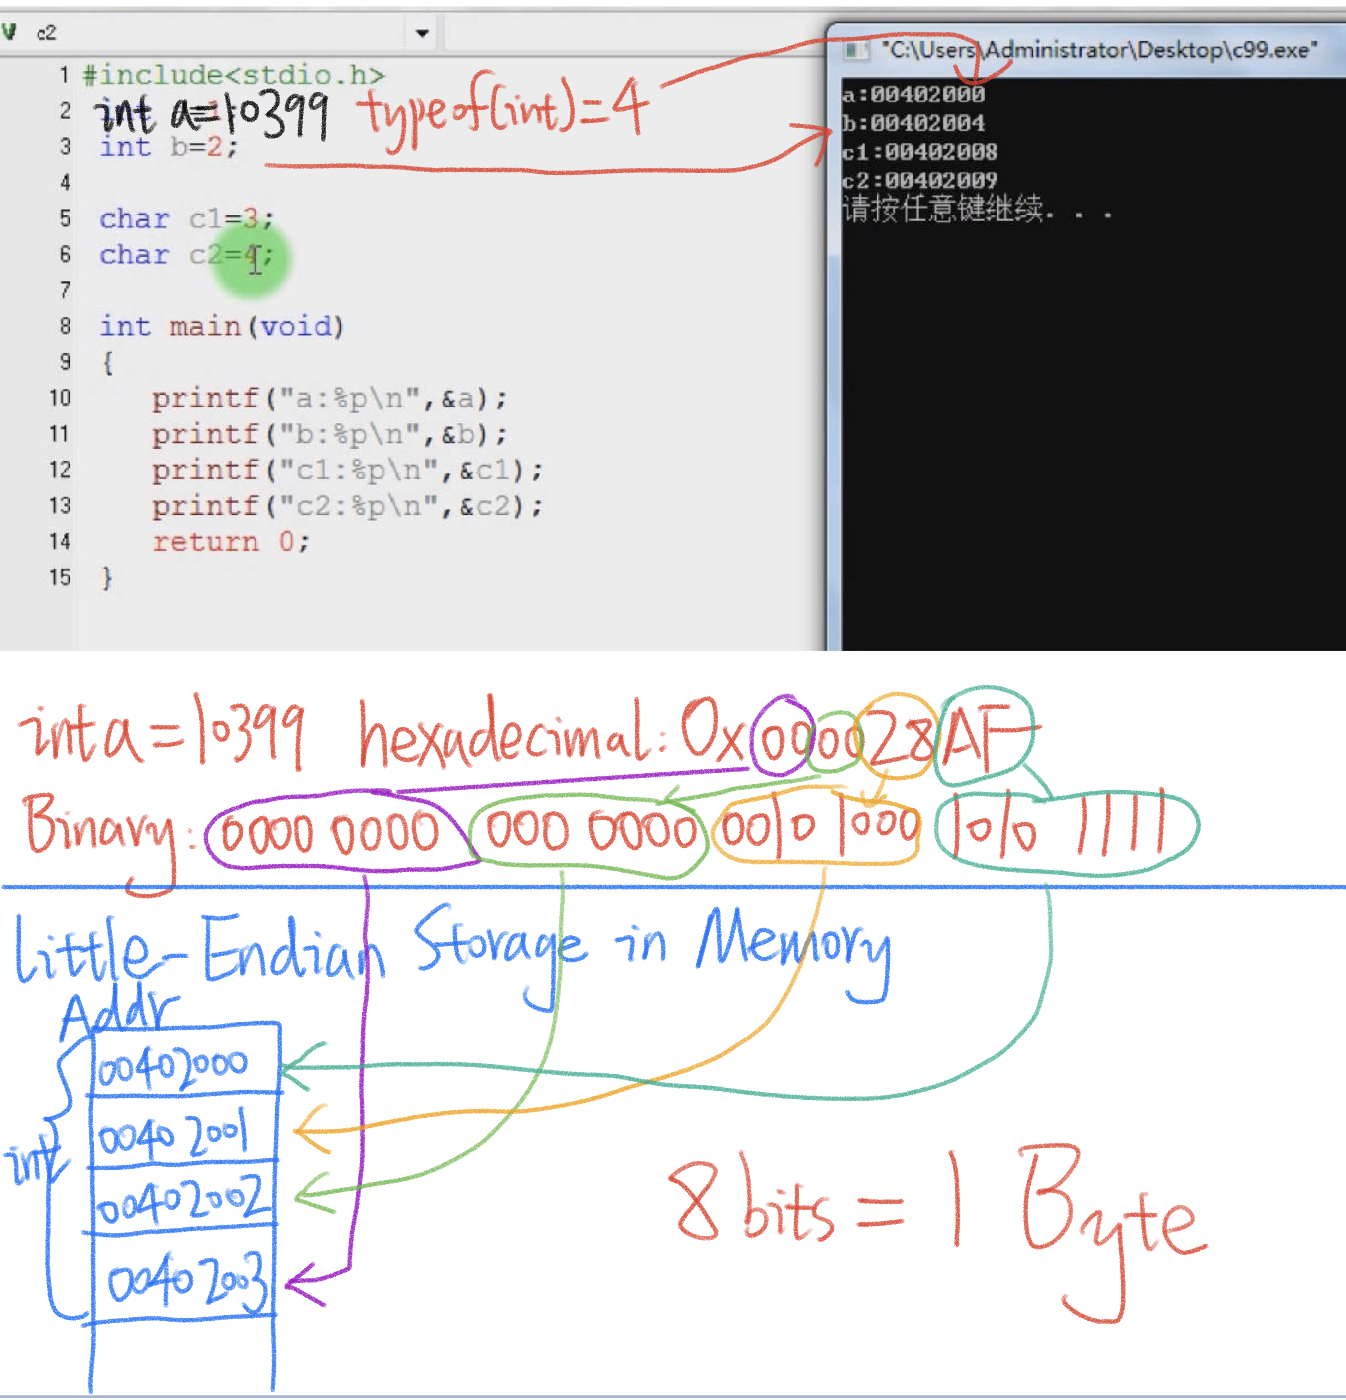 c2
"C:\Users\Administrator\Desktop\c99.exe"
1 #include<stdio.h>
2 int a=10399 typeof(int)=4
3 int b=2;
4
5 char c1=3;
6 char c2=4;
7
8 int main(void)
9 {
10 printf("a:%p\n",&a);
11 printf("b:%p\n",&b);
12 printf("c1:%p\n",&c1);
13 printf("c2:%p\n",&c2);
14 return 0;
15 }
a:00402000
b:00402004
c1:00402008
c2:00402009
请按任意键继续. . .
int a=10399 hexadecimal: 0x000028AF
Binary: 0000 0000 000 0000 0010 1000 1010 1111
Little-Endian Storage in Memory
Addr
00402000
00402001
int
00402002
00402003
8 bits = 1 Byte